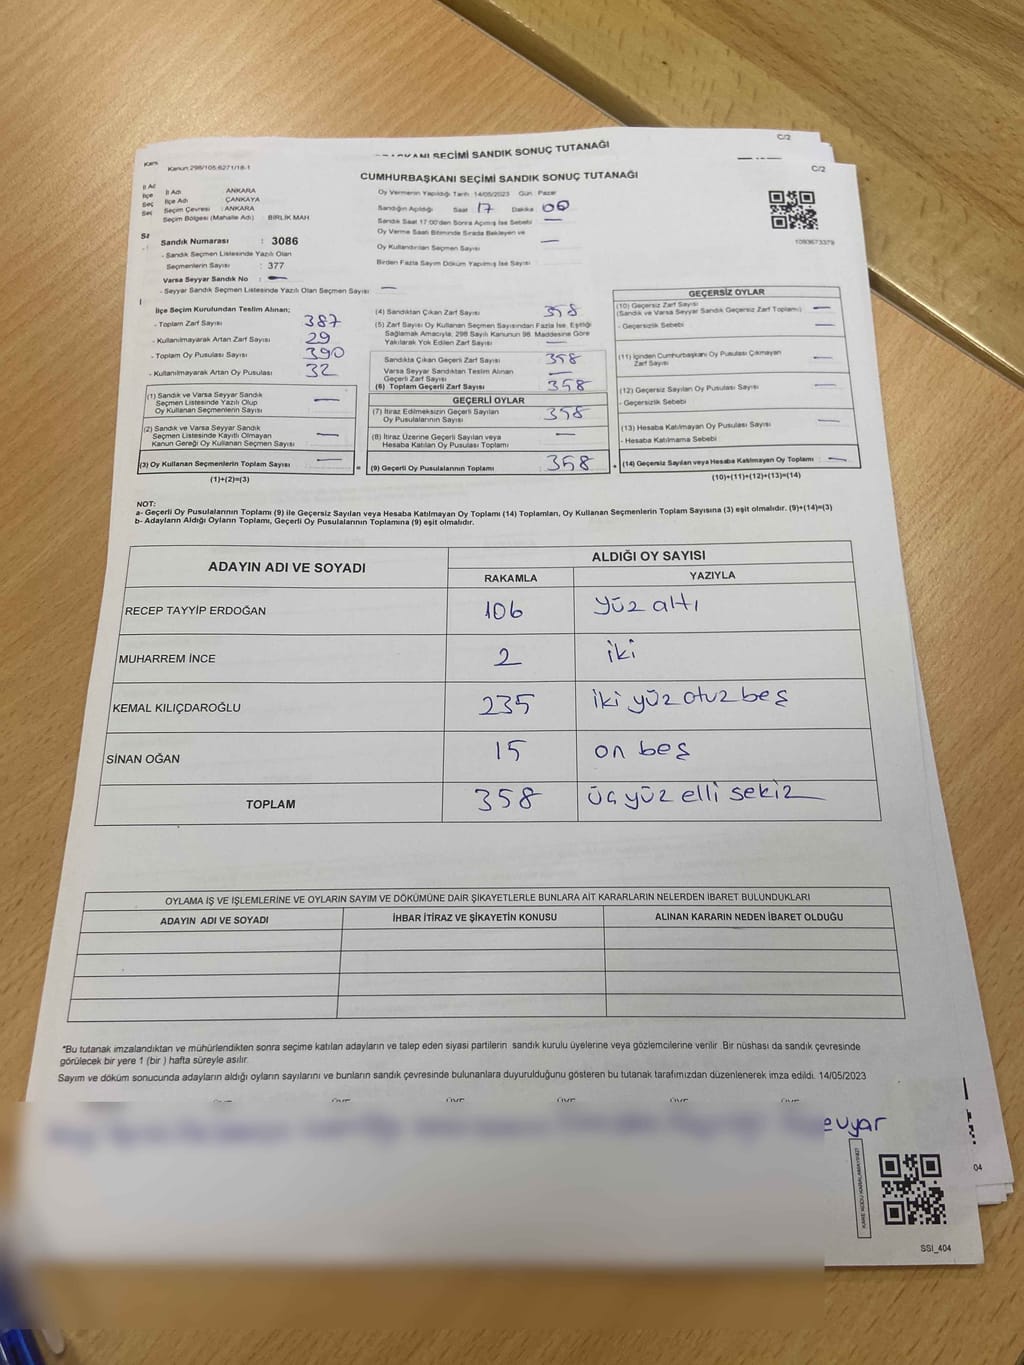 CUMHURBAŞKANI SEÇİMİ SANDIK SONUÇ TUTANAĞI
SEÇİMİ SANDIK SONUÇ TUTANAĞI
C/2
C/2
Kanun:298/105;6271/18-1
İl Adı ANKARA
İlçe Adı ÇANKAYA
Seçim Çevresi : ANKARA
Seçim Bölgesi (Mahalle Adı) : BİRLİK MAH
Sandık Numarası : 3086
- Sandık Seçmen Listesinde Yazılı Olan
Seçmenlerin Sayısı : 377
Varsa Seyyar Sandık No : —
- Seyyar Sandık Seçmen Listesinde Yazılı Olan Seçmen Sayısı : —
Oy Vermenin Yapıldığı Tarih :14/05/2023 Gün : Pazar
Sandığın Açıldığı Saat 17 Dakika 00
Sandık Saat 17:00'den Sonra Açılmış İse Sebebi —
Oy Verme Saati Bitiminde Sırada Bekleyen ve
Oy Kullandırılan Seçmen Sayısı —
Birden Fazla Sayım Döküm Yapılmış İse Sayısı
1093673379
İlçe Seçim Kurulundan Teslim Alınan;
- Toplam Zarf Sayısı 387
- Kullanılmayarak Artan Zarf Sayısı 29
- Toplam Oy Pusulası Sayısı 390
- Kullanılmayarak Artan Oy Pusulası 32
(1) Sandık ve Varsa Seyyar Sandık
Seçmen Listesinde Yazılı Olup
Oy Kullanan Seçmenlerin Sayısı —
(2) Sandık ve Varsa Seyyar Sandık
Seçmen Listesinde Kayıtlı Olmayan
Kanun Gereği Oy Kullanan Seçmen Sayısı —
(3) Oy Kullanan Seçmenlerin Toplam Sayısı —
(1)+(2)=(3)
(4) Sandıktan Çıkan Zarf Sayısı 358
(5) Zarf Sayısı Oy Kullanan Seçmen Sayısından Fazla İse, Eşitliği
Sağlamak Amacıyla, 298 Sayılı Kanunun 98. Maddesine Göre
Yakılarak Yok Edilen Zarf Sayısı —
Sandıkta Çıkan Geçerli Zarf Sayısı 358
Varsa Seyyar Sandıktan Teslim Alınan
Geçerli Zarf Sayısı —
(6) Toplam Geçerli Zarf Sayısı 358
GEÇERLİ OYLAR
(7) İtiraz Edilmeksizin Geçerli Sayılan
Oy Pusulalarının Sayısı 358
(8) İtiraz Üzerine Geçerli Sayılan veya
Hesaba Katılan Oy Pusulası Toplamı —
= (9) Geçerli Oy Pusulalarının Toplamı : 358
GEÇERSİZ OYLAR
(10) Geçersiz Zarf Sayısı
(Sandık ve Varsa Seyyar Sandık Geçersiz Zarf Toplamı) —
- Geçersizlik Sebebi —
(11) İçinden Cumhurbaşkanı Oy Pusulası Çıkmayan
Zarf Sayısı —
(12) Geçersiz Sayılan Oy Pusulası Sayısı —
- Geçersizlik Sebebi
(13) Hesaba Katılmayan Oy Pusulası Sayısı —
- Hesaba Katılmama Sebebi
+ (14) Geçersiz Sayılan veya Hesaba Katılmayan Oy Toplamı : —
(10)+(11)+(12)+(13)=(14)
NOT:
a- Geçerli Oy Pusulalarının Toplamı (9) ile Geçersiz Sayılan veya Hesaba Katılmayan Oy Toplamı (14) Toplamları, Oy Kullanan Seçmenlerin Toplam Sayısına (3) eşit olmalıdır. (9)+(14)=(3)
b- Adayların Aldığı Oyların Toplamı, Geçerli Oy Pusulalarının Toplamına (9) eşit olmalıdır.
ADAYIN ADI VE SOYADI ALDIĞI OY SAYISI
RAKAMLA YAZIYLA
RECEP TAYYİP ERDOĞAN 106 yüz altı
MUHARREM İNCE 2 iki
KEMAL KILIÇDAROĞLU 235 iki yüz otuz beş
SİNAN OĞAN 15 on beş
TOPLAM 358 üç yüz elli sekiz
OYLAMA İŞ VE İŞLEMLERİNE VE OYLARIN SAYIM VE DÖKÜMÜNE DAİR ŞİKAYETLERLE BUNLARA AİT KARARLARIN NELERDEN İBARET BULUNDUKLARI
ADAYIN ADI VE SOYADI İHBAR İTİRAZ VE ŞİKAYETİN KONUSU ALINAN KARARIN NEDEN İBARET OLDUĞU
*Bu tutanak imzalandıktan ve mühürlendikten sonra seçime katılan adayların ve talep eden siyasi partilerin sandık kurulu üyelerine veya gözlemcilerine verilir. Bir nüshası da sandık çevresinde
görülecek bir yere 1 (bir ) hafta süreyle asılır.
Sayım ve döküm sonucunda adayların aldığı oyların sayılarını ve bunların sandık çevresinde bulunanlara duyurulduğunu gösteren bu tutanak tarafımızdan düzenlenerek imza edildi. 14/05/2023
KARE KODU KARALAMAYINIZ!
04
SSI_404